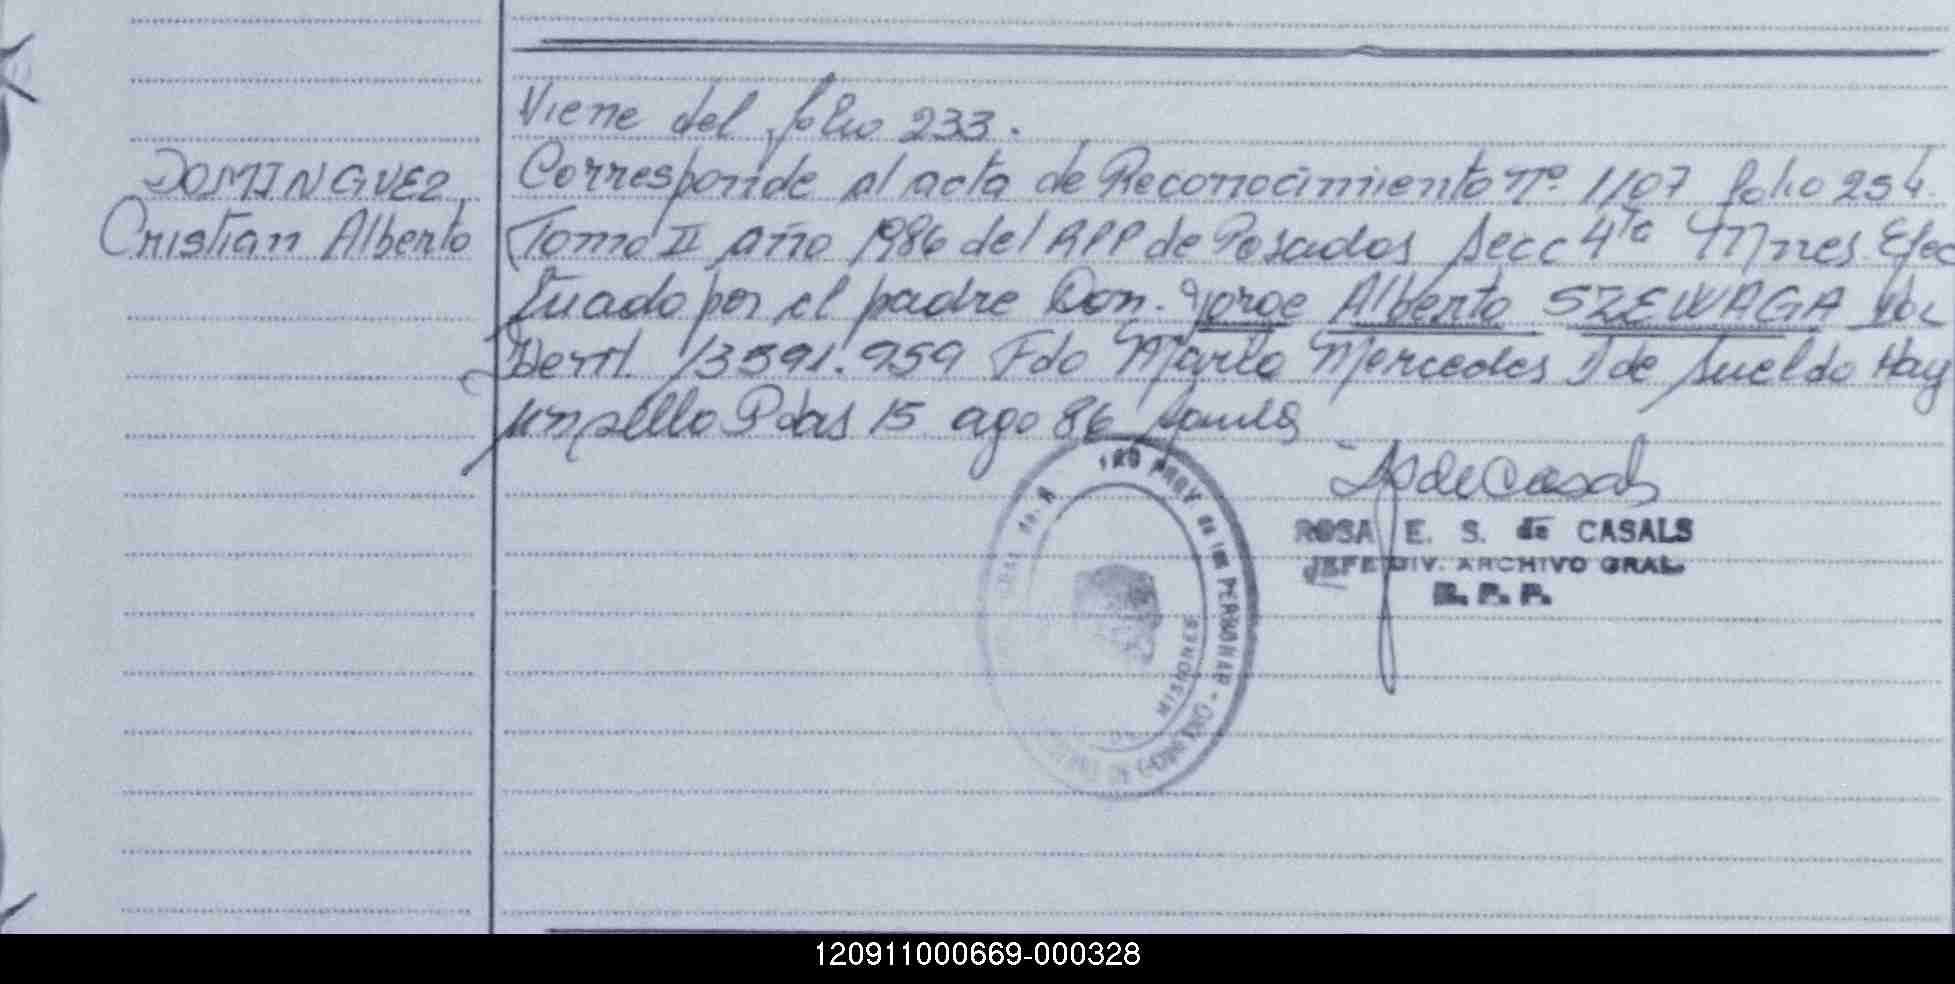 Viene del folio 233.
DOMINGUEZ
Cristian Alberto
Corresponde al acta de Reconocimiento nº 1107 folio 254
Tomo II año 1986 del RPP de Posadas Secc 4ta Mnes. Efec
tuado por el padre Don. Jorge Alberto SZEWAGA Doc
Ident. 13591.959 Fdo Marta Mercedes de Sueldo Hay
un sello Pdas 15 ago 86
de Casals
ROSA E. S. de CASALS
JEFE DIV. ARCHIVO GRAL.
R. P. P.
PROV. de las PERSONAS
MISIONES
120911000669-000328